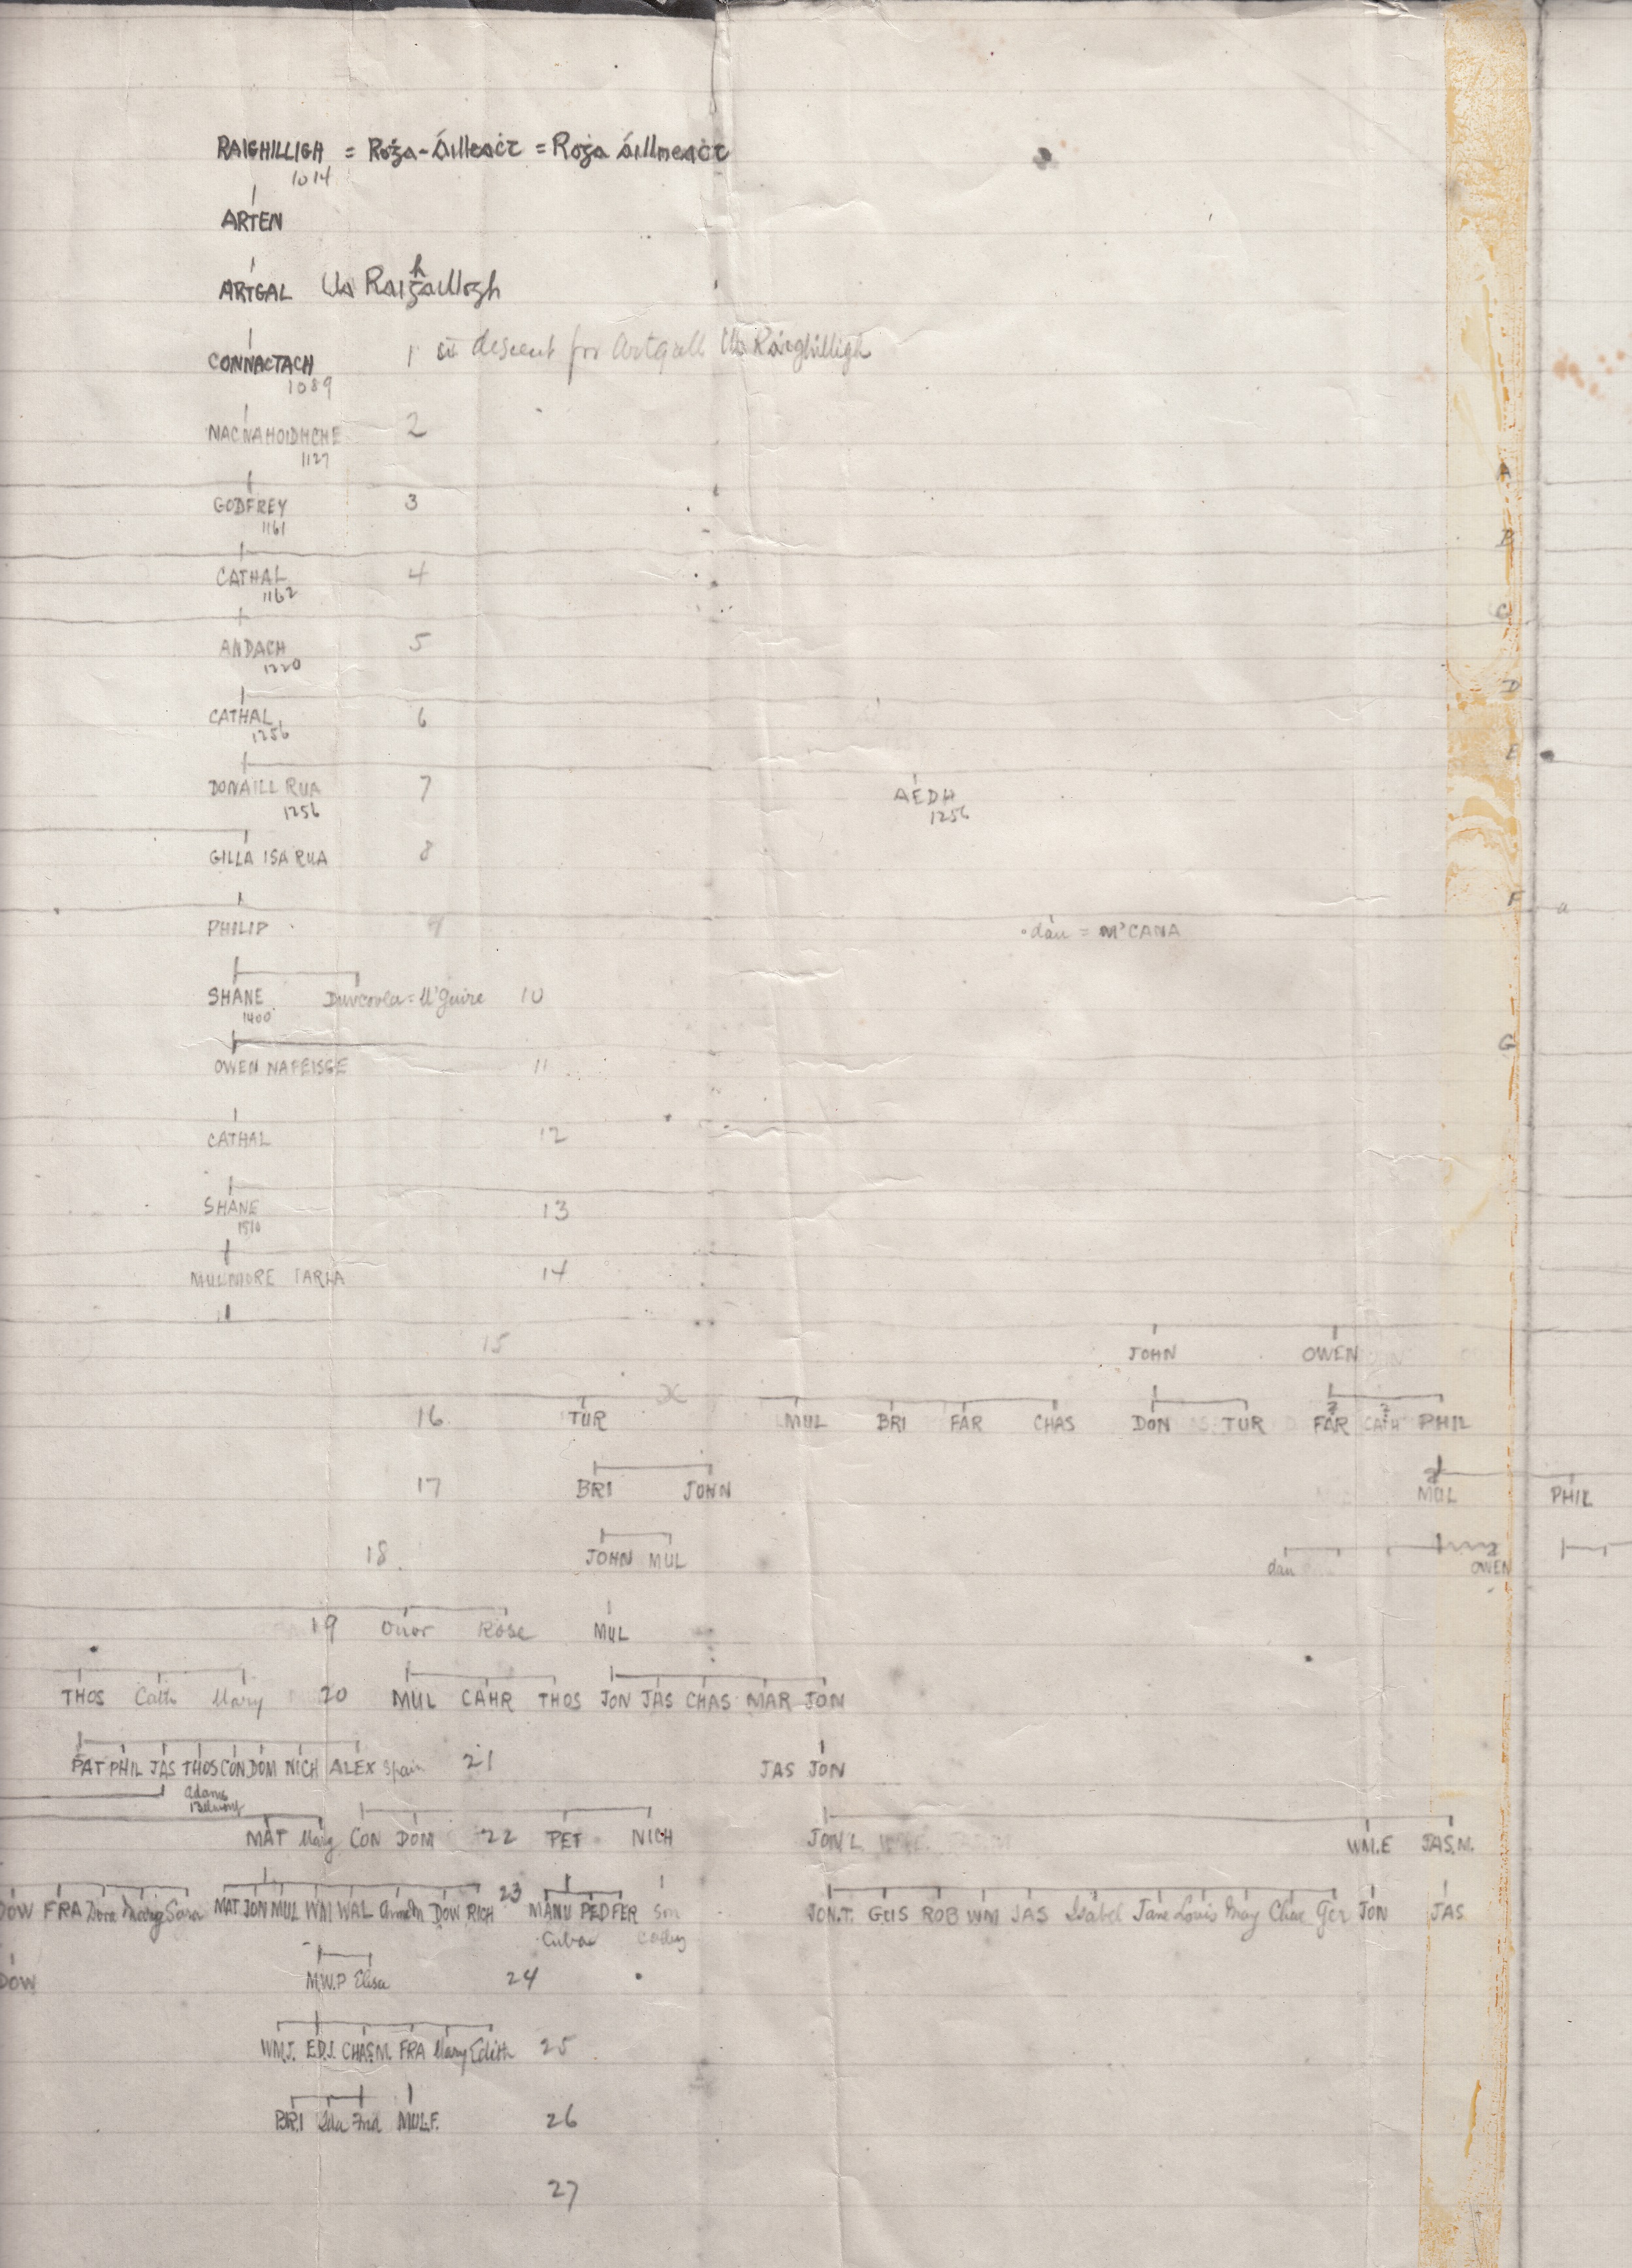 RAIGHILLIGH = Roġa-áilleaċt = Roġa áillneaċt
1014
ARTEN
ARTGAL Ua Raiġhaillogh
CONNACTACH 1 in descent for Artgall Ua Raighilligh
1089
MACNAHOIDHCHE 2
1127
A
GODFREY 3
1161
B
CATHAL 4
1162
C
ANDACH 5
1220
D
CATHAL 6
1256
E
DONAILL RUA 7 AEDH
1256 1256
GILLA ISA RUA 8
F a
PHILIP 9 dau = McCANA
SHANE Duvcovla = M'Guire 10
1400
G
OWEN NAFEISGE 11
CATHAL 12
SHANE 13
1510
MULMORE IARLA 14
15 JOHN OWEN
X
16 TUR MUL BRI FAR CHAS DON TUR FAR CATH PHIL
17 BRI JOHN MUL PHIL
18. JOHN MUL dau OWEN
19 Onor Rose MUL
THOS Cath Mary 20 MUL CAHR THOS JON JAS CHAS MAR JON
PAT PHIL JAS THOS CON DOM NICH ALEX Spain 21 JAS JON
Adams
MAT Marg CON DOM 22 PET NICH JON L. WM.E JAS.M.
DOW FRA Dora Marg Sara MAT JON MUL WM WAL DOW RICH 23 MANU PED FER Son JON.T. GUS ROB WM JAS Isabel Jane Louis May Chas Ger JON JAS
Cuba
DOW M.W.P Elisa 24
WM.J. ED.J. CHAS.M. FRA Mary Edith 25
BRI Ida Fred MUL.F. 26
27